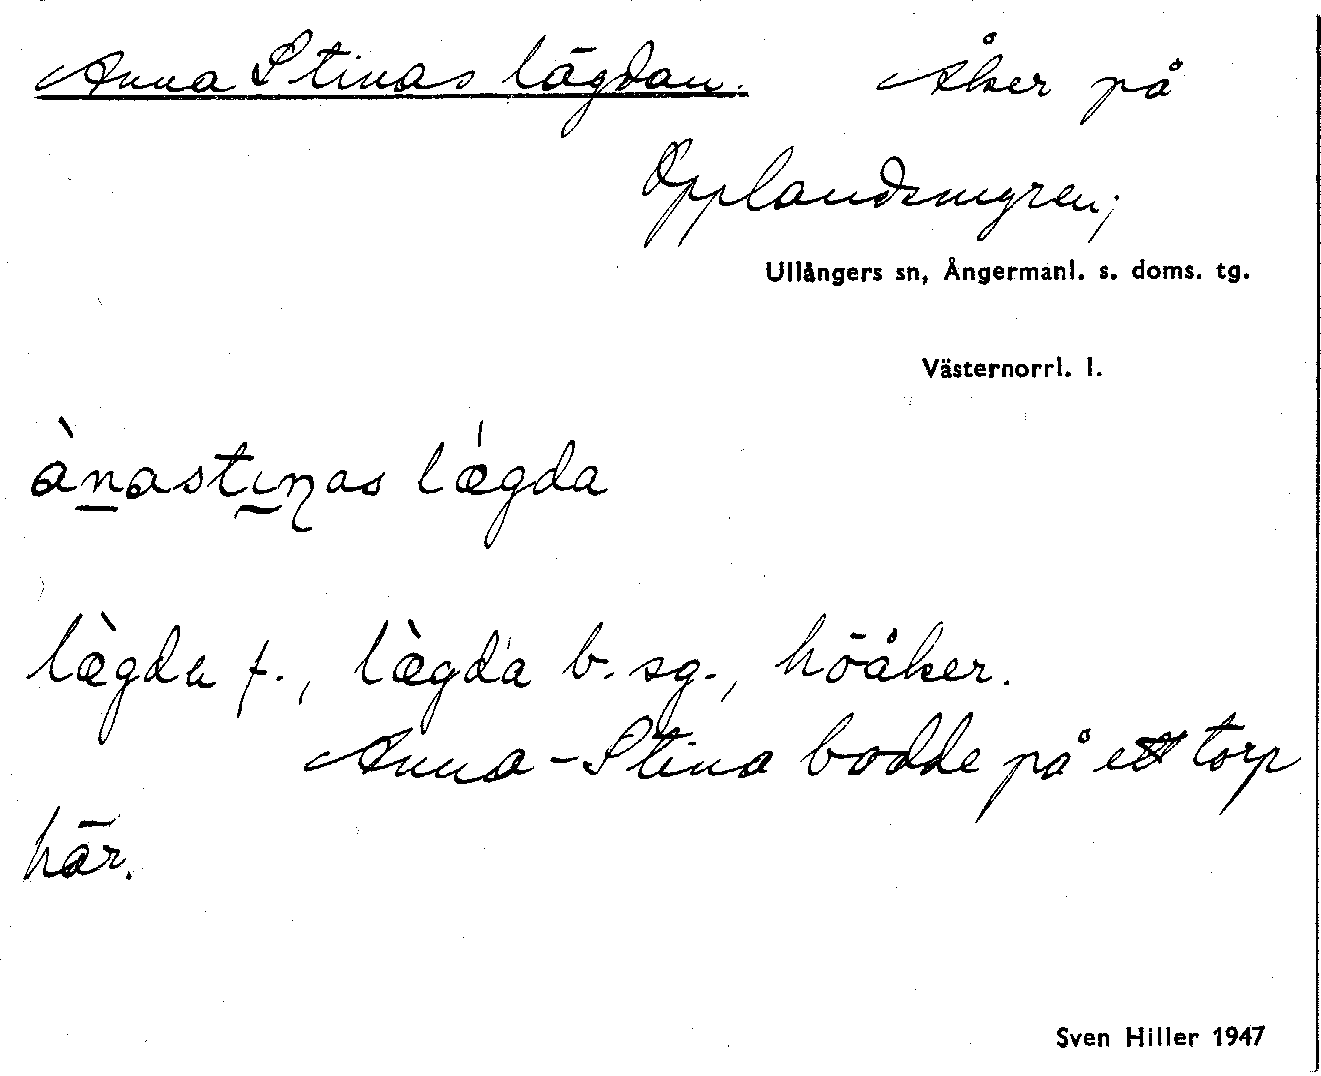 Anna Stinas lägdan. Åker på
Opplandsmyren;
Ullångers sn, Ångermanl. s. doms. tg.
Västernorrl. l.
ànastɩnas lǽgda
lægda f., lægda b. sg., höåker.
Anna-Stina bodde på ett torp
här.
Sven Hiller 1947